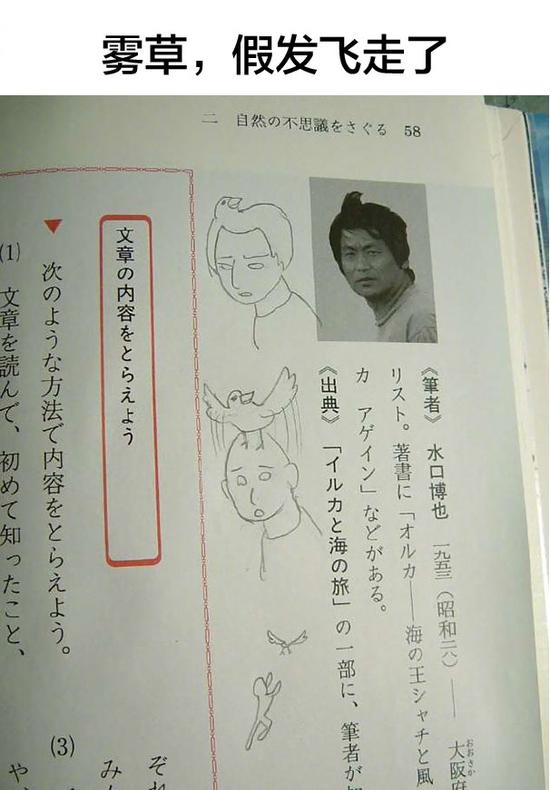 雾草，假发飞走了
二　自然の不思議をさぐる　58
《筆者》　水口博也　一九五三（昭和二八）――　大阪府
リスト。著書に「オルカ――海の王シャチと風
カ　アゲイン」などがある。
《出典》　「イルカと海の旅」の一部に、筆者が
文章の内容をとらえよう
▼　次のような方法で内容をとらえよう。
(1)　文章を読んで、初めて知ったこと、
(3)　ぞれ
み
や